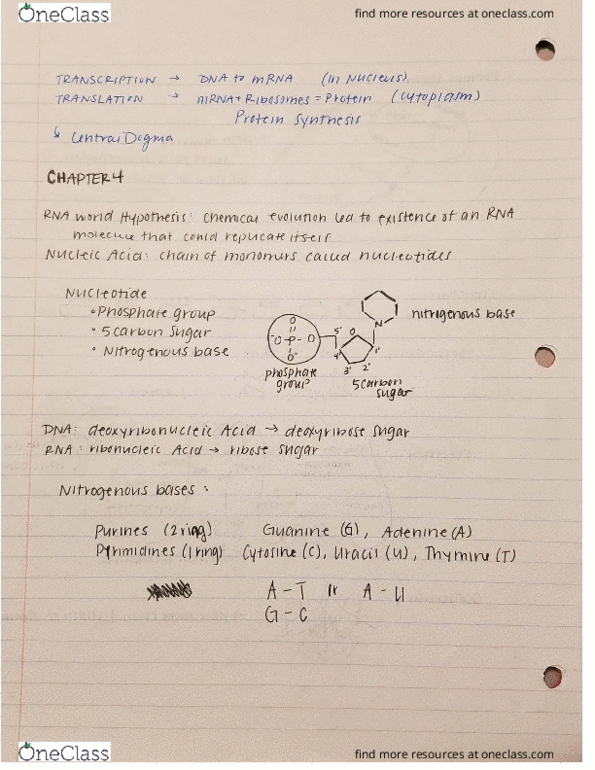 OneClass
find more resources at oneclass.com
TRANSCRIPTION → DNA to mRNA (in Nucleus)
TRANSLATION → mRNA + Ribosomes = Protein (cytoplasm)
Protein Synthesis
↳ Central Dogma
CHAPTER 4
RNA world Hypothesis: chemical evolution led to existence of an RNA
molecule that could replicate itself
Nucleic Acid: chain of monomurs called nucleotides
Nucleotide
• Phosphate group
• 5 carbon sugar
• Nitrogenous base
O
-O-P-O
O-
phosphate
group
5'
O
4'
1'
3'
2'
N
5 carbon
sugar
nitrigenous base
DNA: deoxyribonucleic Acid → deoxyribose sugar
RNA: ribonucleic Acid → ribose sugar
Nitrogenous bases:
Purines (2 ring) Guanine (G), Adenine (A)
Pyrimidines (1 ring) Cytosine (C), Uracil (U), Thymine (T)
A - T Ir A - U
G - C
OneClass
find more resources at oneclass.com